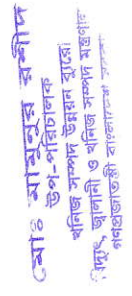 মোঃ মামুনুর রশীদ
উপ-পরিচালক
খনিজ সম্পদ উন্নয়ন ব্যুরো
বিদ্যুৎ, জ্বালানী ও খনিজ সম্পদ মন্ত্রণালয়
গণপ্রজাতন্ত্রী বাংলাদেশ